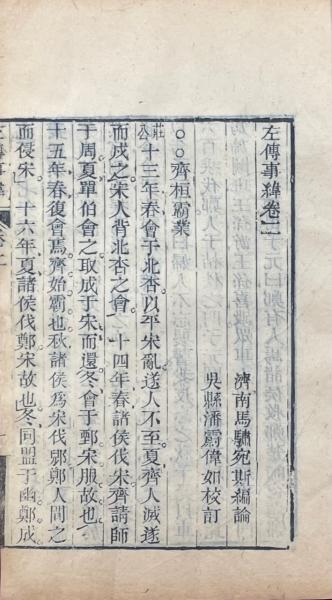 左傳事緯卷二
濟南馬驌宛斯編論
吳縣潘霨偉如校訂
○○齊桓霸業
莊公十三年春會于北杏以平宋亂遂人不至夏齊人滅遂
而戍之宋人背北杏之會 十四年春諸侯伐宋齊請師
于周夏單伯會之取成于宋而還冬會于鄄宋服故也
十五年春復會焉齊始霸也秋諸侯為宋伐郳鄭人間之
而侵宋 十六年夏諸侯伐鄭宋故也冬同盟于幽鄭成